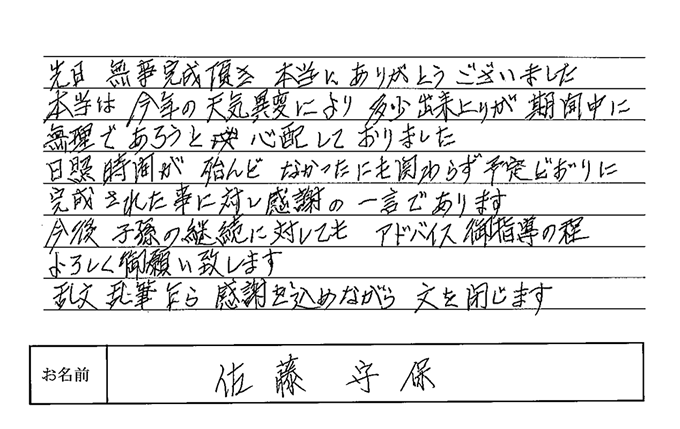 先日 無事完成頂き 本当に ありがとう ございました
本当は 今年の 天気異変により 多少 出来上りが 期間中に
無理で あろうと 心配して おりました
日照時間が 殆んど なかったにも関わらず 予定どおりに
完成 された事に対し 感謝の 一言であります
今後 子孫の継続に対しても アドバイス 御指導の程
よろしく御願い致します
乱文 乱筆乍ら 感謝を込めながら 文を閉じます
お名前 佐藤 守保